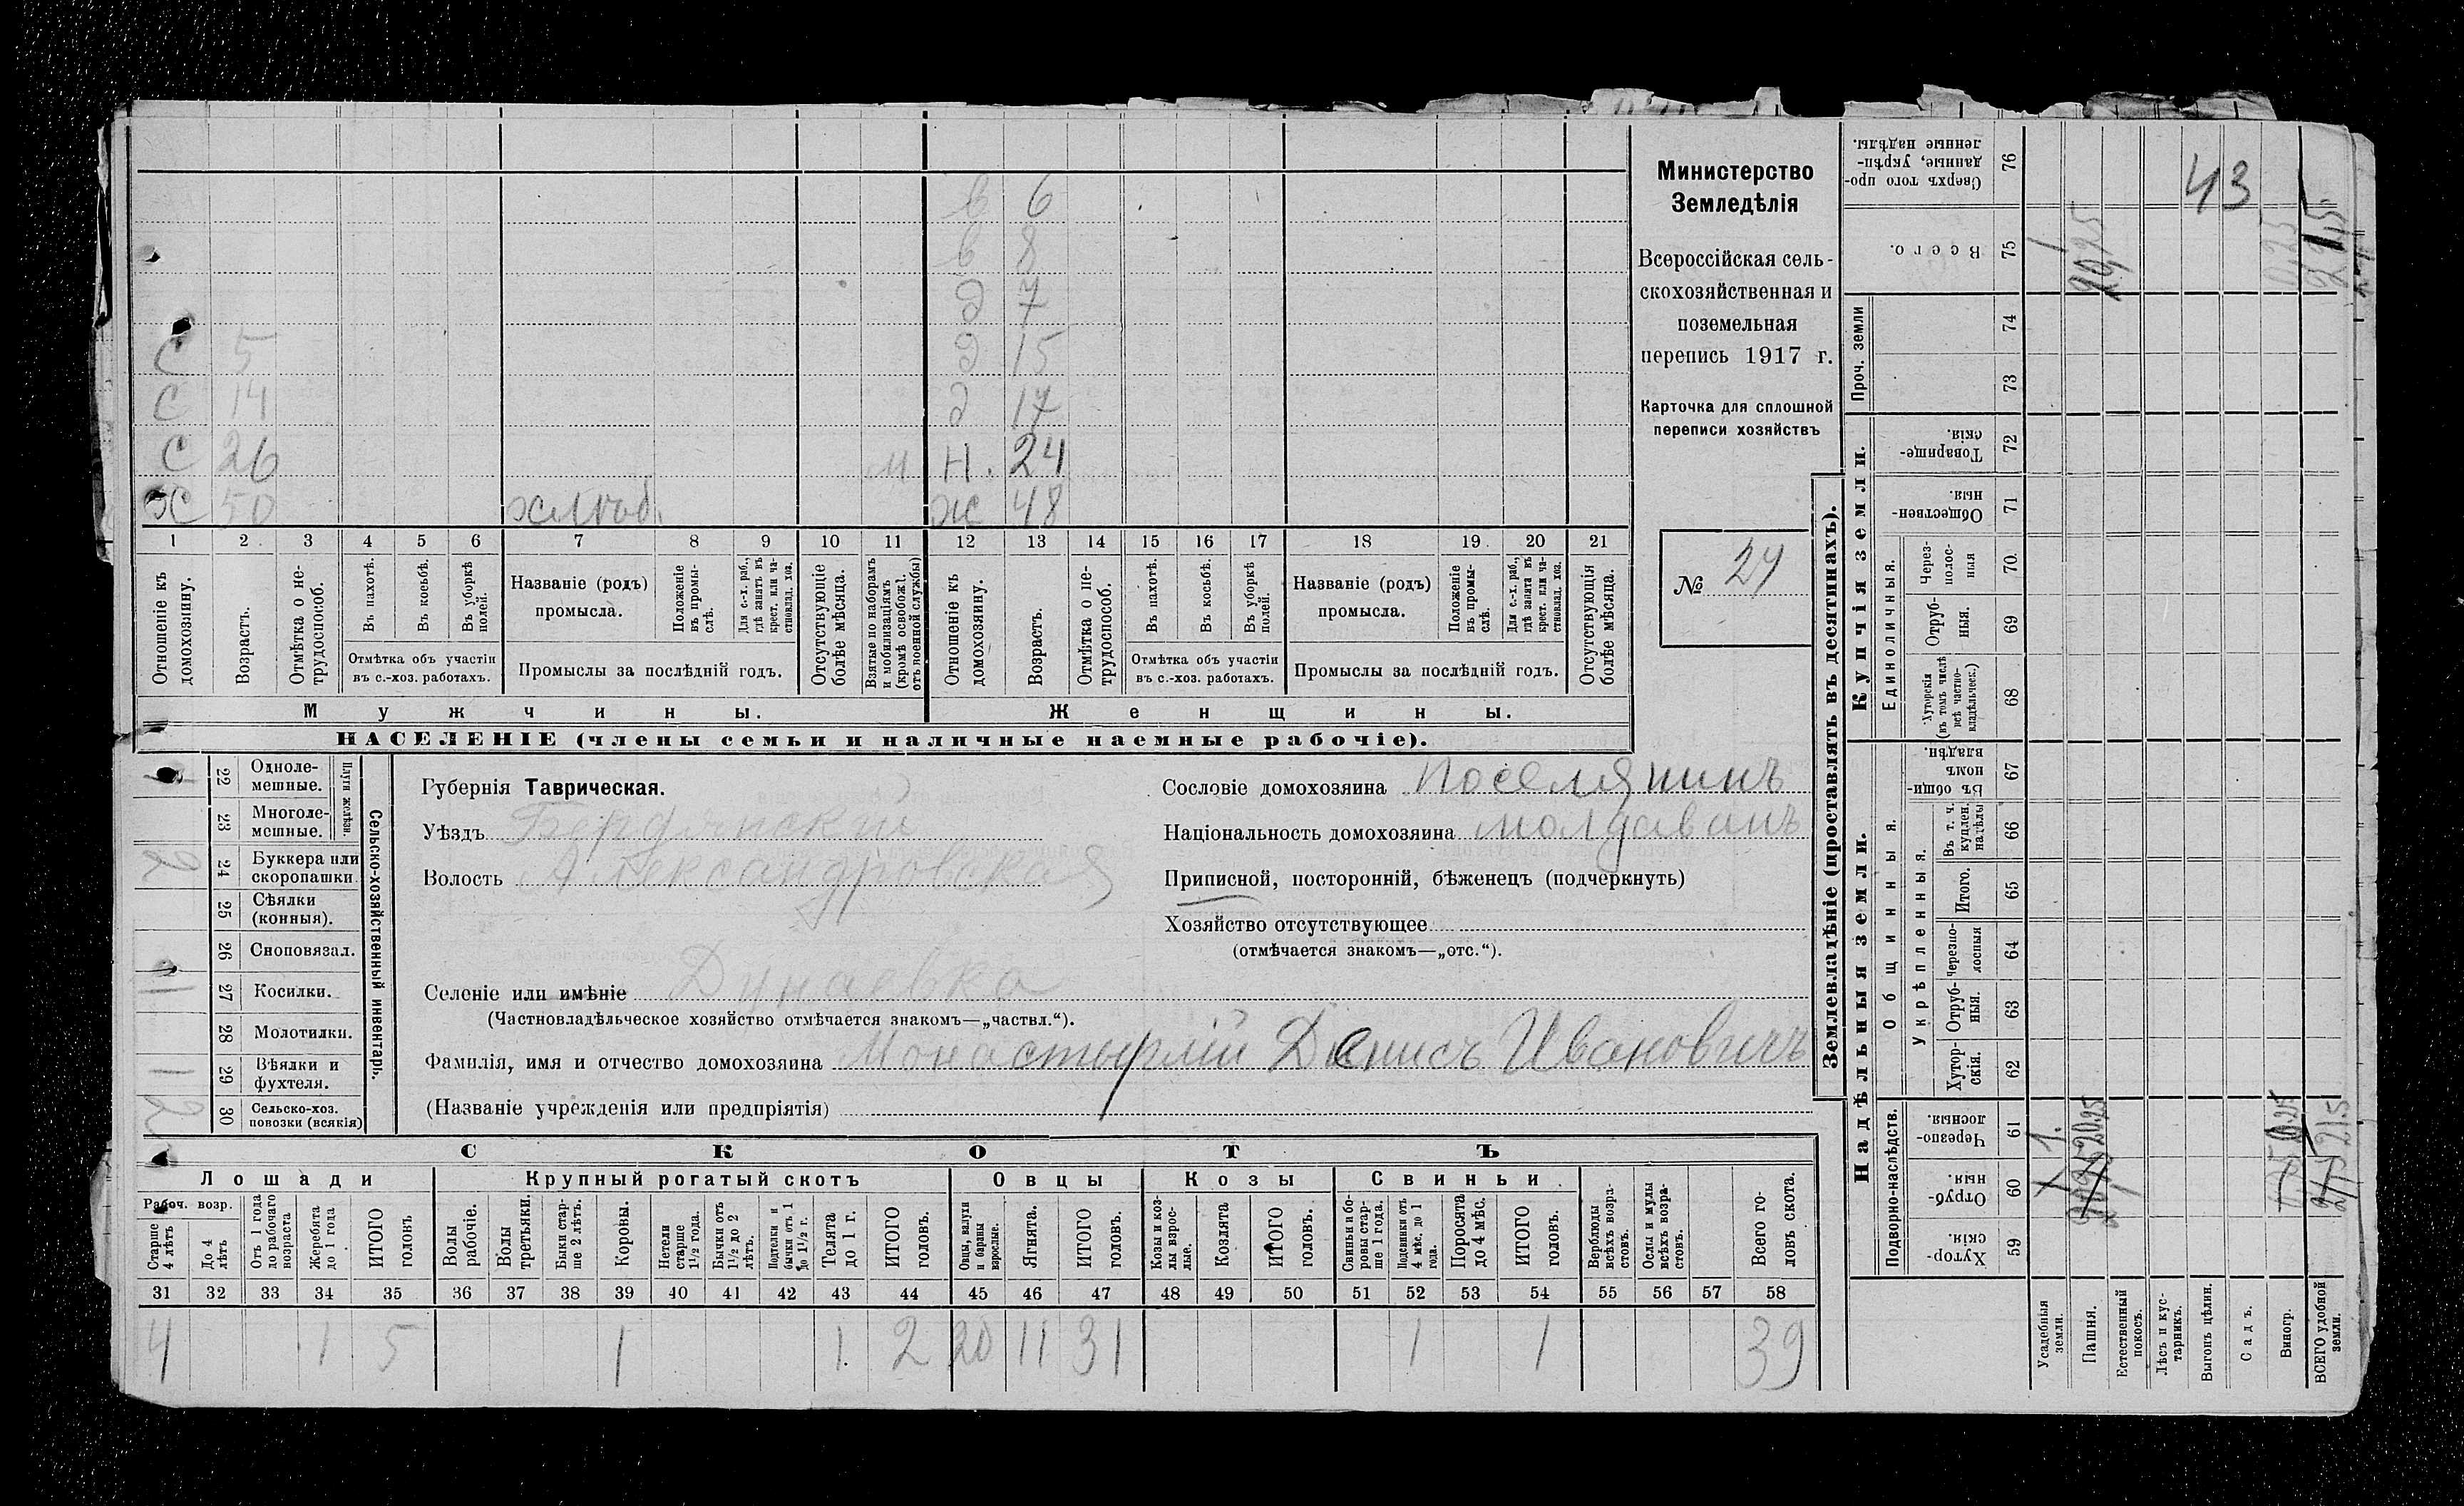 в 6
в 8
д 7
С 5 д 15
С 14 д 17
С 26 м Н. 24
Ж 50 хлѣб. ж 48
1 2 3 4 5 6 7 8 9 10 11 12 13 14 15 16 17 18 19 20 21
Отношеніе къ домохозяину.
Возрастъ.
Отмѣтка о нетрудоспособ.
Въ пахотѣ.
Въ косьбѣ.
Въ уборкѣ полей.
Отмѣтка объ участіи
въ с.-хоз. работахъ.
Названіе (родъ)
промысла.
Положеніе въ промыслѣ.
Для с.-х. раб., гдѣ занятъ въ крест. или частновлад. хоз.
Промыслы за послѣдній годъ.
Отсутствующіе болѣе мѣсяца.
Взятые по наборамъ и мобилизаціямъ (кромѣ освобожд. отъ военной службы)
Отношеніе къ домохозяину.
Возрастъ.
Отмѣтка о нетрудоспособ.
Въ пахотѣ.
Въ косьбѣ.
Въ уборкѣ полей.
Отмѣтка объ участіи
въ с.-хоз. работахъ.
Названіе (родъ)
промысла.
Положеніе въ промыслѣ.
Для с.-х. раб., гдѣ занята въ крест. или частновлад. хоз.
Промыслы за послѣдній годъ.
Отсутствующія болѣе мѣсяца.
Мужчины. Женщины.
НАСЕЛЕНІЕ (члены семьи и наличные наемные рабочіе).
Министерство
Земледѣлія
Всероссійская сель-
скохозяйственная и
поземельная
перепись 1917 г.
Карточка для сплошной
переписи хозяйствъ
№ 24
Сельско-хозяйственный инвентарь.
Плуги желѣзн.
22 Одноле-
мешные.
23 Многоле-
мешные.
2 24 Буккера или
скоропашки
25 Сѣялки
(конныя).
26 Сноповязал.
1 27 Косилки.
28 Молотилки.
1 29 Вѣялки и
фухтеля.
2 30 Сельско-хоз.
повозки (всякія)
Губернія Таврическая.
Уѣздъ Бердянскій
Волость Александровская
Селеніе или имѣніе Дунаевка
(Частновладѣльческое хозяйство отмѣчается знакомъ—„частвл.“).
Фамилія, имя и отчество домохозяина Монастырлій Денисъ Ивановичъ
(Названіе учрежденія или предпріятія)
Сословіе домохозяина Поселянинъ
Національность домохозяина молдаванъ
Приписной, посторонній, бѣженецъ (подчеркнуть)
Хозяйство отсутствующее
(отмѣчается знакомъ—„отс.“).
СКОТЪ
Лошади Крупный рогатый скотъ Овцы Козы Свиньи
Рабоч. возр.
Старше 4 лѣтъ
До 4 лѣтъ
Отъ 1 года до рабочаго возраста
Жеребята до 1 года
ИТОГО головъ
Волы рабочіе.
Волы третьяки.
Быки старше 2 лѣтъ.
Коровы.
Нетели старше 1½ года.
Бычки отъ 1½ до 2 лѣтъ.
Подтелки и бычки отъ 1 до 1½ г.
Телята до 1 г.
ИТОГО головъ.
Овцы, валухи и бараны взрослые.
Ягнята.
ИТОГО головъ.
Козы и козлы взрослые.
Козлята
ИТОГО головъ.
Свиньи и боровы старше 1 года.
Подсвинки отъ 4 мѣс. до 1 года.
Поросята до 4 мѣс.
ИТОГО головъ.
Верблюды всѣхъ возрастовъ.
Ослы и мулы всѣхъ возрастовъ.
Всего головъ скота.
31 32 33 34 35 36 37 38 39 40 41 42 43 44 45 46 47 48 49 50 51 52 53 54 55 56 57 58
4 1 5 1 1 2 20 11 31 1 1 39
Землевладѣніе (проставлять въ десятинахъ).
Надѣльныя земли. Купчія земли. Проч. земли
Подворно-наслѣдств.
Общинныя.
Укрѣпленныя.
Единоличныя.
Хуторскія. 59
Отрубныя. 60
Черезполосныя. 61
Хуторскія. 62
Отрубныя. 63
Черезполосныя 64
Итого. 65
Въ т. ч. куплен. надѣлы 66
Въ общиномъ владѣн. 67
Хуторскія (въ томъ числѣ всѣ частновладѣльческ.) 68
Отрубныя. 69
Черезполосныя 70.
Общественныя. 71
Товарищескія. 72
73
74
Всего. 75
Сверхъ того проданные, укрѣпленные надѣлы. 76
Усадебныя земли. 1. 1
Пашня. 2025
Естественный покосъ.
Лѣсъ и кустарникъ.
Выгонъ цѣлин.
Садъ.
Виногр. 0,25
ВСЕГО удобной земли. 21,5
43